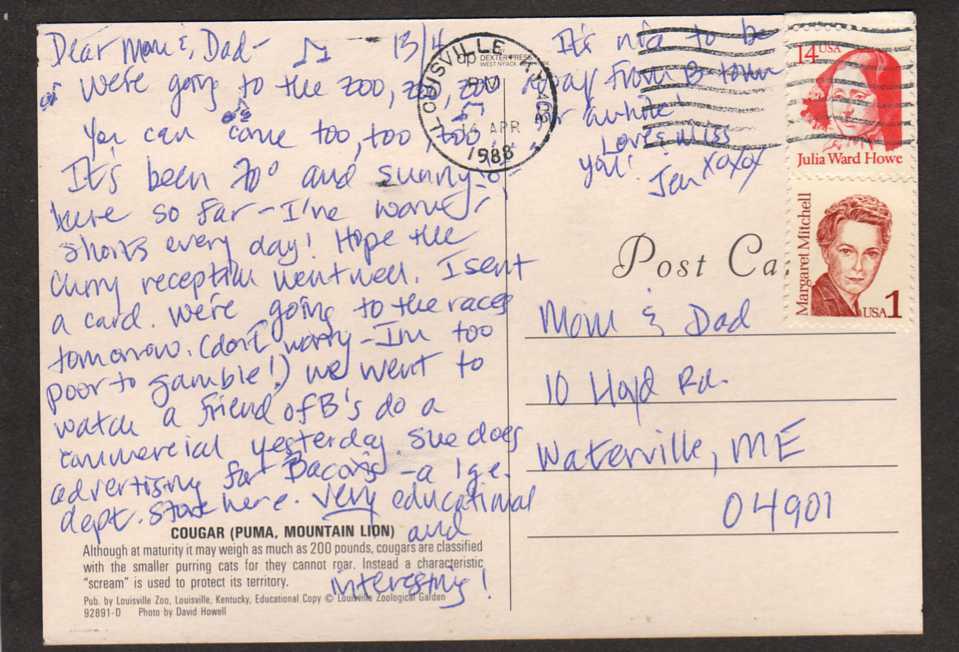 Dear Mom & Dad-
13/4
We're going to the zoo, zoo, zoo
You can come too, too, too
It's been 70° and sunny
here so far - I've worn
shorts every day! Hope the
reception went well. I sent
a card. We're going to the races
tomorrow. (don't worry - I'm too
poor to gamble!) We went to
watch a friend of B's do a
commercial yesterday. She does
advertising for Bacon's - a lge.
dept. store here. Very educational
and
interesting!
It's nice to be
away from B-town
for awhile!
Love & miss
you!
Jen xoxox
LOUISVILLE, KY
DEXTER PRESS
WEST NYACK
PM
APR
1988
14 USA
Julia Ward Howe
Margaret Mitchell
USA 1
Post Ca
Mom & Dad
10 Lloyd Rd.
Waterville, ME
04901
COUGAR (PUMA, MOUNTAIN LION)
Although at maturity it may weigh as much as 200 pounds, cougars are classified
with the smaller purring cats for they cannot roar. Instead a characteristic
"scream" is used to protect its territory.
Pub. by Louisville Zoo, Louisville, Kentucky, Educational Copy © Louisville Zoological Garden
92891-D Photo by David Howell